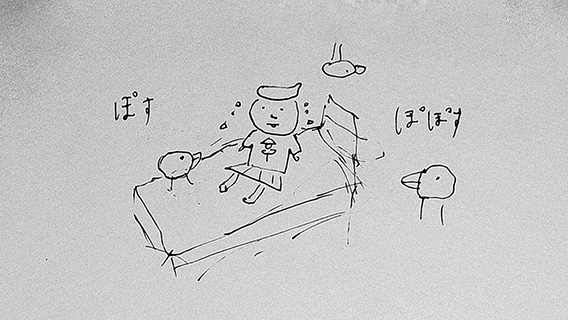 ぽす
ぽぽす